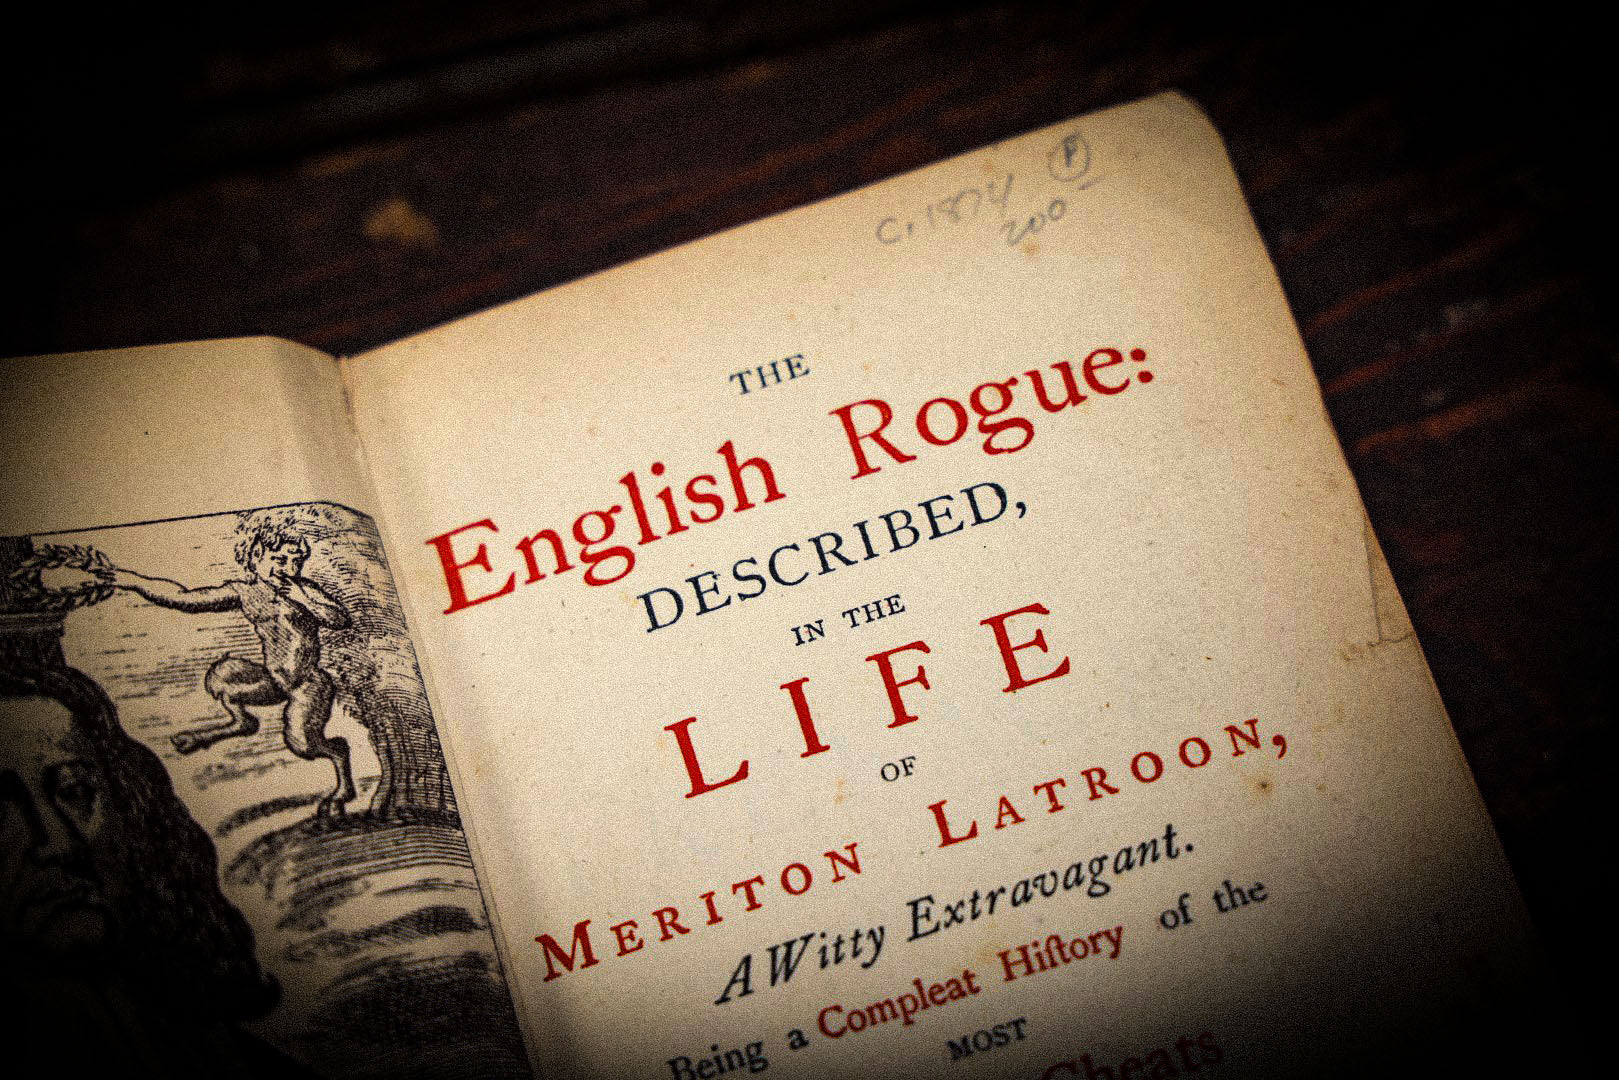 F
C. 1874
200
THE
English Rogue:
DESCRIBED,
IN THE
LIFE
OF
MERITON LATROON,
A Witty Extravagant.
Being a Compleat Hiſtory of the
MOST
Cheats